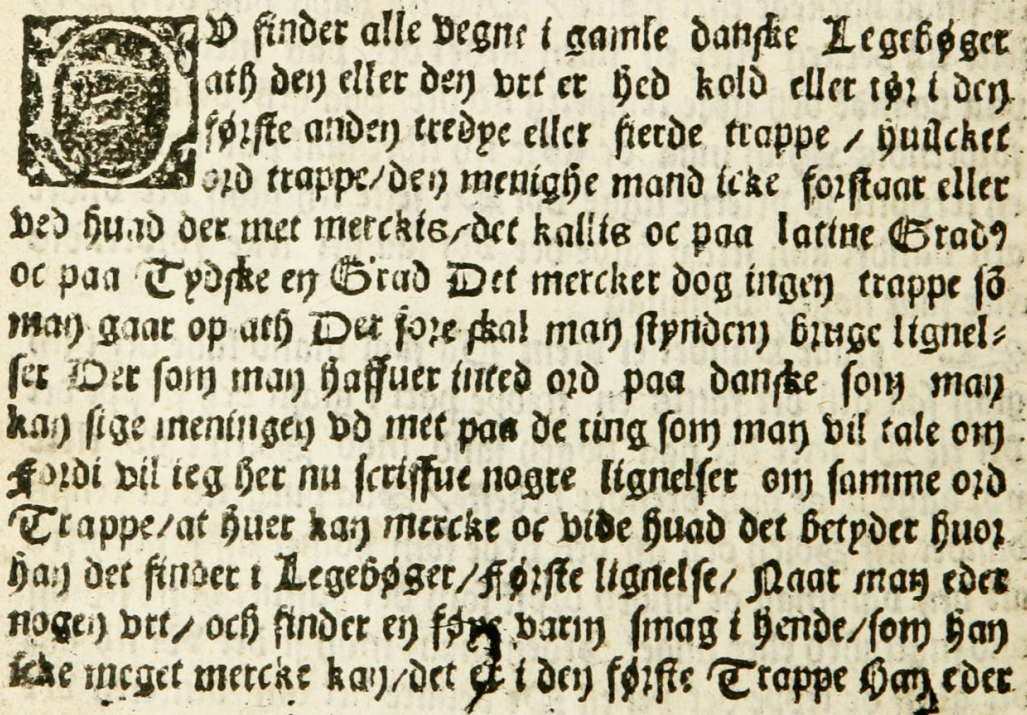 DV finder alle vegne i gamle danske Legebøger
ath den eller den vrt er hed kold eller tør i den
første anden tredye eller fierde trappe / huilcket
ord trappe/den menighe mand icke forstaar eller
ved huad der met merckis/det kallis oc paa latine Gradꝰ
oc paa Tydske en Grad Det mercker dog ingen trappe sō
man gaar op ath Der fore skal man stynden bruge lignel⸗
ser Der som man haffuer inted ord paa danske som man
kan sige meningen vd met paa de ting som man vil tale om
Fordi vil ieg her nu scriffue nogre lignelser om samme ord
Trappe/at huer kan mercke oc vide huad det betyder huor
han det finder i Legebøger/Første lignelse/ Naar man eder
nogen vrt/ och finder en føye varm smag i hende/som han
icke meget mercke kan/det er i den første Trappe Han eder